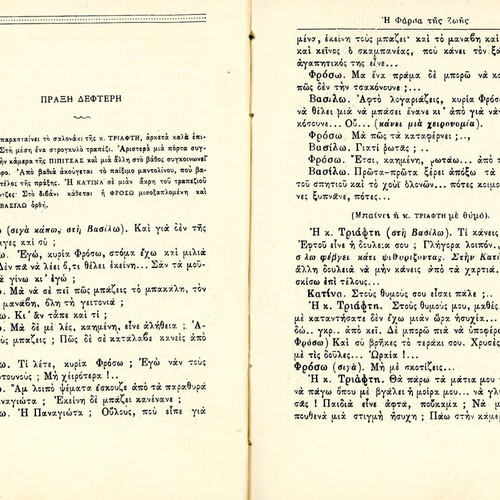 ΠΡΑΞΗ ΔΕΦΤΕΡΗ
παρασταίνει το σαλονάκι τῆς κ. ΤΡΙΑΦΤΗ, ἀρκετὰ καλὰ ἐπι-
Στὴ μέση ἕνα στρογκυλο τραπέζι. Ἀριστερὰ μιὰ πόρτα συγ-
τὴν κάμερα τῆς ΠΙΠΙΤΣΑΣ καὶ μιὰ ἄλλη στὸ βάθος συγκοινωνεῖ
δρο. Ἀπὸ βαθιὰ ἀκούγεται τὸ παίξιμο μαντολίνου, ποὺ βα-
τέλος τῆς πράξης. Ἡ ΚΑΤΙΝΑ σὲ μιὰν ἄκρη τοῦ τραπεζιοῦ
Στὸ διβάνι κάθεται ἡ ΦΡΟΣΩ μισοξαπλωμένη καὶ
ΒΑΣΙΛΩ ὀρθή.
(σιγὰ κάπω, στὴ Βασίλω). Καὶ γιὰ δὲν τῆς
αγες καὶ σύ ;
ω. Ἐγώ, κυρία Φρόσω, στόμα ἔχω καὶ μιλιὰ
Δὲν πᾶ νὰ λέει ὅ,τι θέλει ἐκείνη... Σὰν τὰ μοῦ-
γίνω κι' ἐγώ ;
. Μὰ νὰ σὲ πεῖ πῶς μπάζεις τὸ μπακάλη, τὸν
μανάβη, ὅλη τὴ γειτονιά ;
ω. Κι' ἂν τἄπε καὶ τί ;
. Μὰ δὲ μὲ λές, καημένη, εἶνε ἀλήθεια ; Ἀ-
μπάζεις ; Πῶς δὲ σὲ κατάλαβε κανεὶς ἀπὸ
ω. Τί λέτε, κυρία Φρόσω ; Ἐγὼ νἀν τοὺς
ρτουνούς ; Μὴ χειρότερα !..
. Ἀμ λοιπὸ ψέματα ἔσκουζε ἀπὸ τὰ παραθυρά
Παναγιώτα ; Ἐκείνη δὲ μπάζει κανένανε ;
ω. Ἡ Παναγιώτα ; Οὕλους, ποὺ εἶπε γιὰ
Ἡ Φάρσα τῆς ζωῆς
μένα, ἐκείνη τοὺς μπάζει· καὶ τὸ μανάβη καὶ
καὶ κεῖνος ὁ σκαμπανέας, ποὺ κάνει τὸν ξά
ἀγαπητικός της εἶνε...
Φρόσω. Μὰ ἕνα πράμα δὲ μπορῶ νὰ κα
πῶς δὲν τὴν τσακόνουνε ;...
Βασίλω. Ἀφτὸ λογαριάζεις, κυρία Φρόσω
θέλει μιὰ νὰ μπάσει ἕνανε κι' ἀπὸ γιὰ νὰ
κόσουνε... Οὔ... (κάνει μιὰ χειρονομία).
Φρόσω. Μὰ πῶς τὰ καταφέρνει ;..,
Βασίλω. Γιατί ρωτᾶς ; ..
Φρόσω. Ἔτσι, καημένη, ρωτάω... ἀπὸ τ
Βασίλω. Πρῶτα-πρῶτα ξέρει ἀπόξω τὰ
τοῦ σπητιοῦ καὶ τὸ χούϊ ὁλονῶν... πότες κοιμο
νες ξυπνᾶνε, πότες...
(Μπαίνει ἡ κ. ΤΡΙΑΦΤΗ μὲ θυμό).
Ἡ κ. Τριάφτη (στὴ Βασίλω). Τί κάνεις
Ἐφτοῦ εἶνε ἡ δουλεια σου ; Γλήγορα λοιπόν..
σλω φέβγει κάτι ψιθυρίζοντας. Στὴν Κατί
ἄλλη δουλειὰ νὰ μὴν κάνεις ἀπὸ τὰ χαρτιά.
σκίσω ἐπὶ τέλους...
Κατίνα. Στοὺς θυμούς σου εἶσαι πάλε ;..
Ἡ κ. Τριάφτη. Στοὺς θυμούς μου, μαθές,
μὲ καταντήσατε δὲν ἔχω μιὰν ὥρα ἡσυχία...
δώ.. γκρ.. ἀπὸ κεῖ. Δὲ μπορῶ πιὰ νὰ ὑποφέρω
Φρόσω) Καὶ σὺ βρῆκες τὸ τεράκι σου. Χρυσὲς
μὲ τὶς δοῦλες... Ὡραῖα !...
Φρόσω (σιγά). Μὴ μὲ σκοτίζεις...
Ἡ κ. Τριάφτη. Θὰ πάρω τὰ μάτια μου
νὰ πάγω ὅπου μὲ βγάλει ἡ μοίρα μου... νὰ γλ
σᾶς ! Παιδιὰ εἶνε ἀφτά, ποὔκαμα ; Νὰ μ
πουθενὰ μιὰ στιγμὴ ἥσυχη ; Πάω στὴν κάμερ